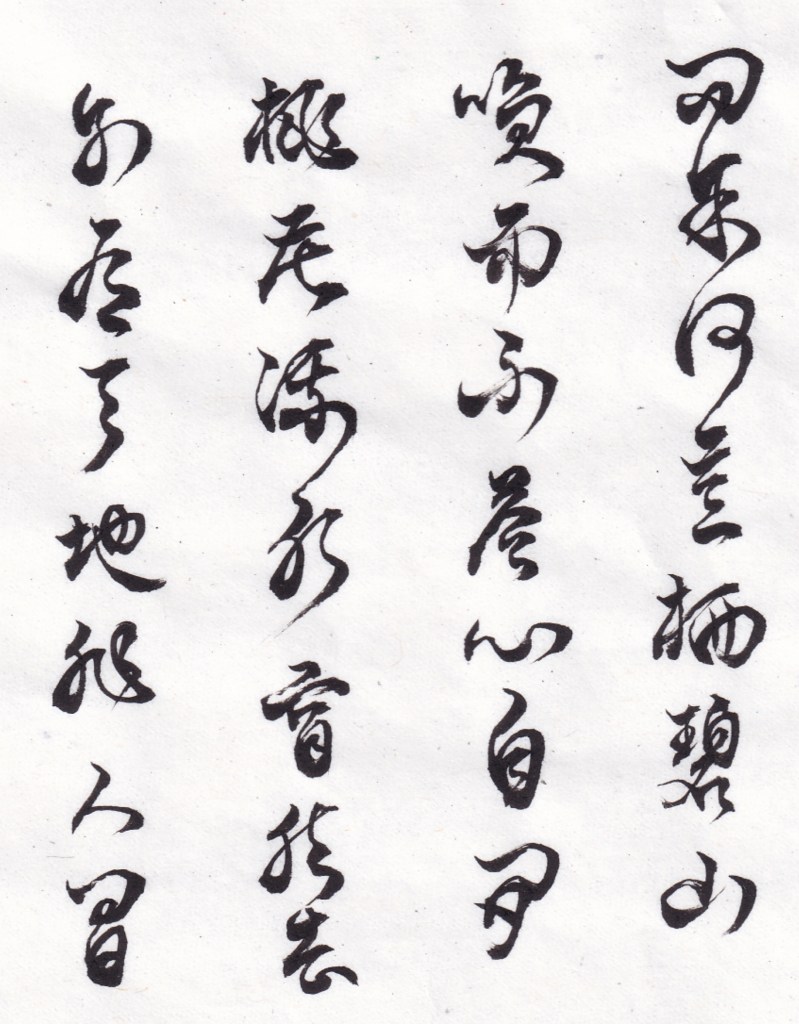 問余何意栖碧山
咲而不答心自閒
桃花流水窅然去
別有天地非人間